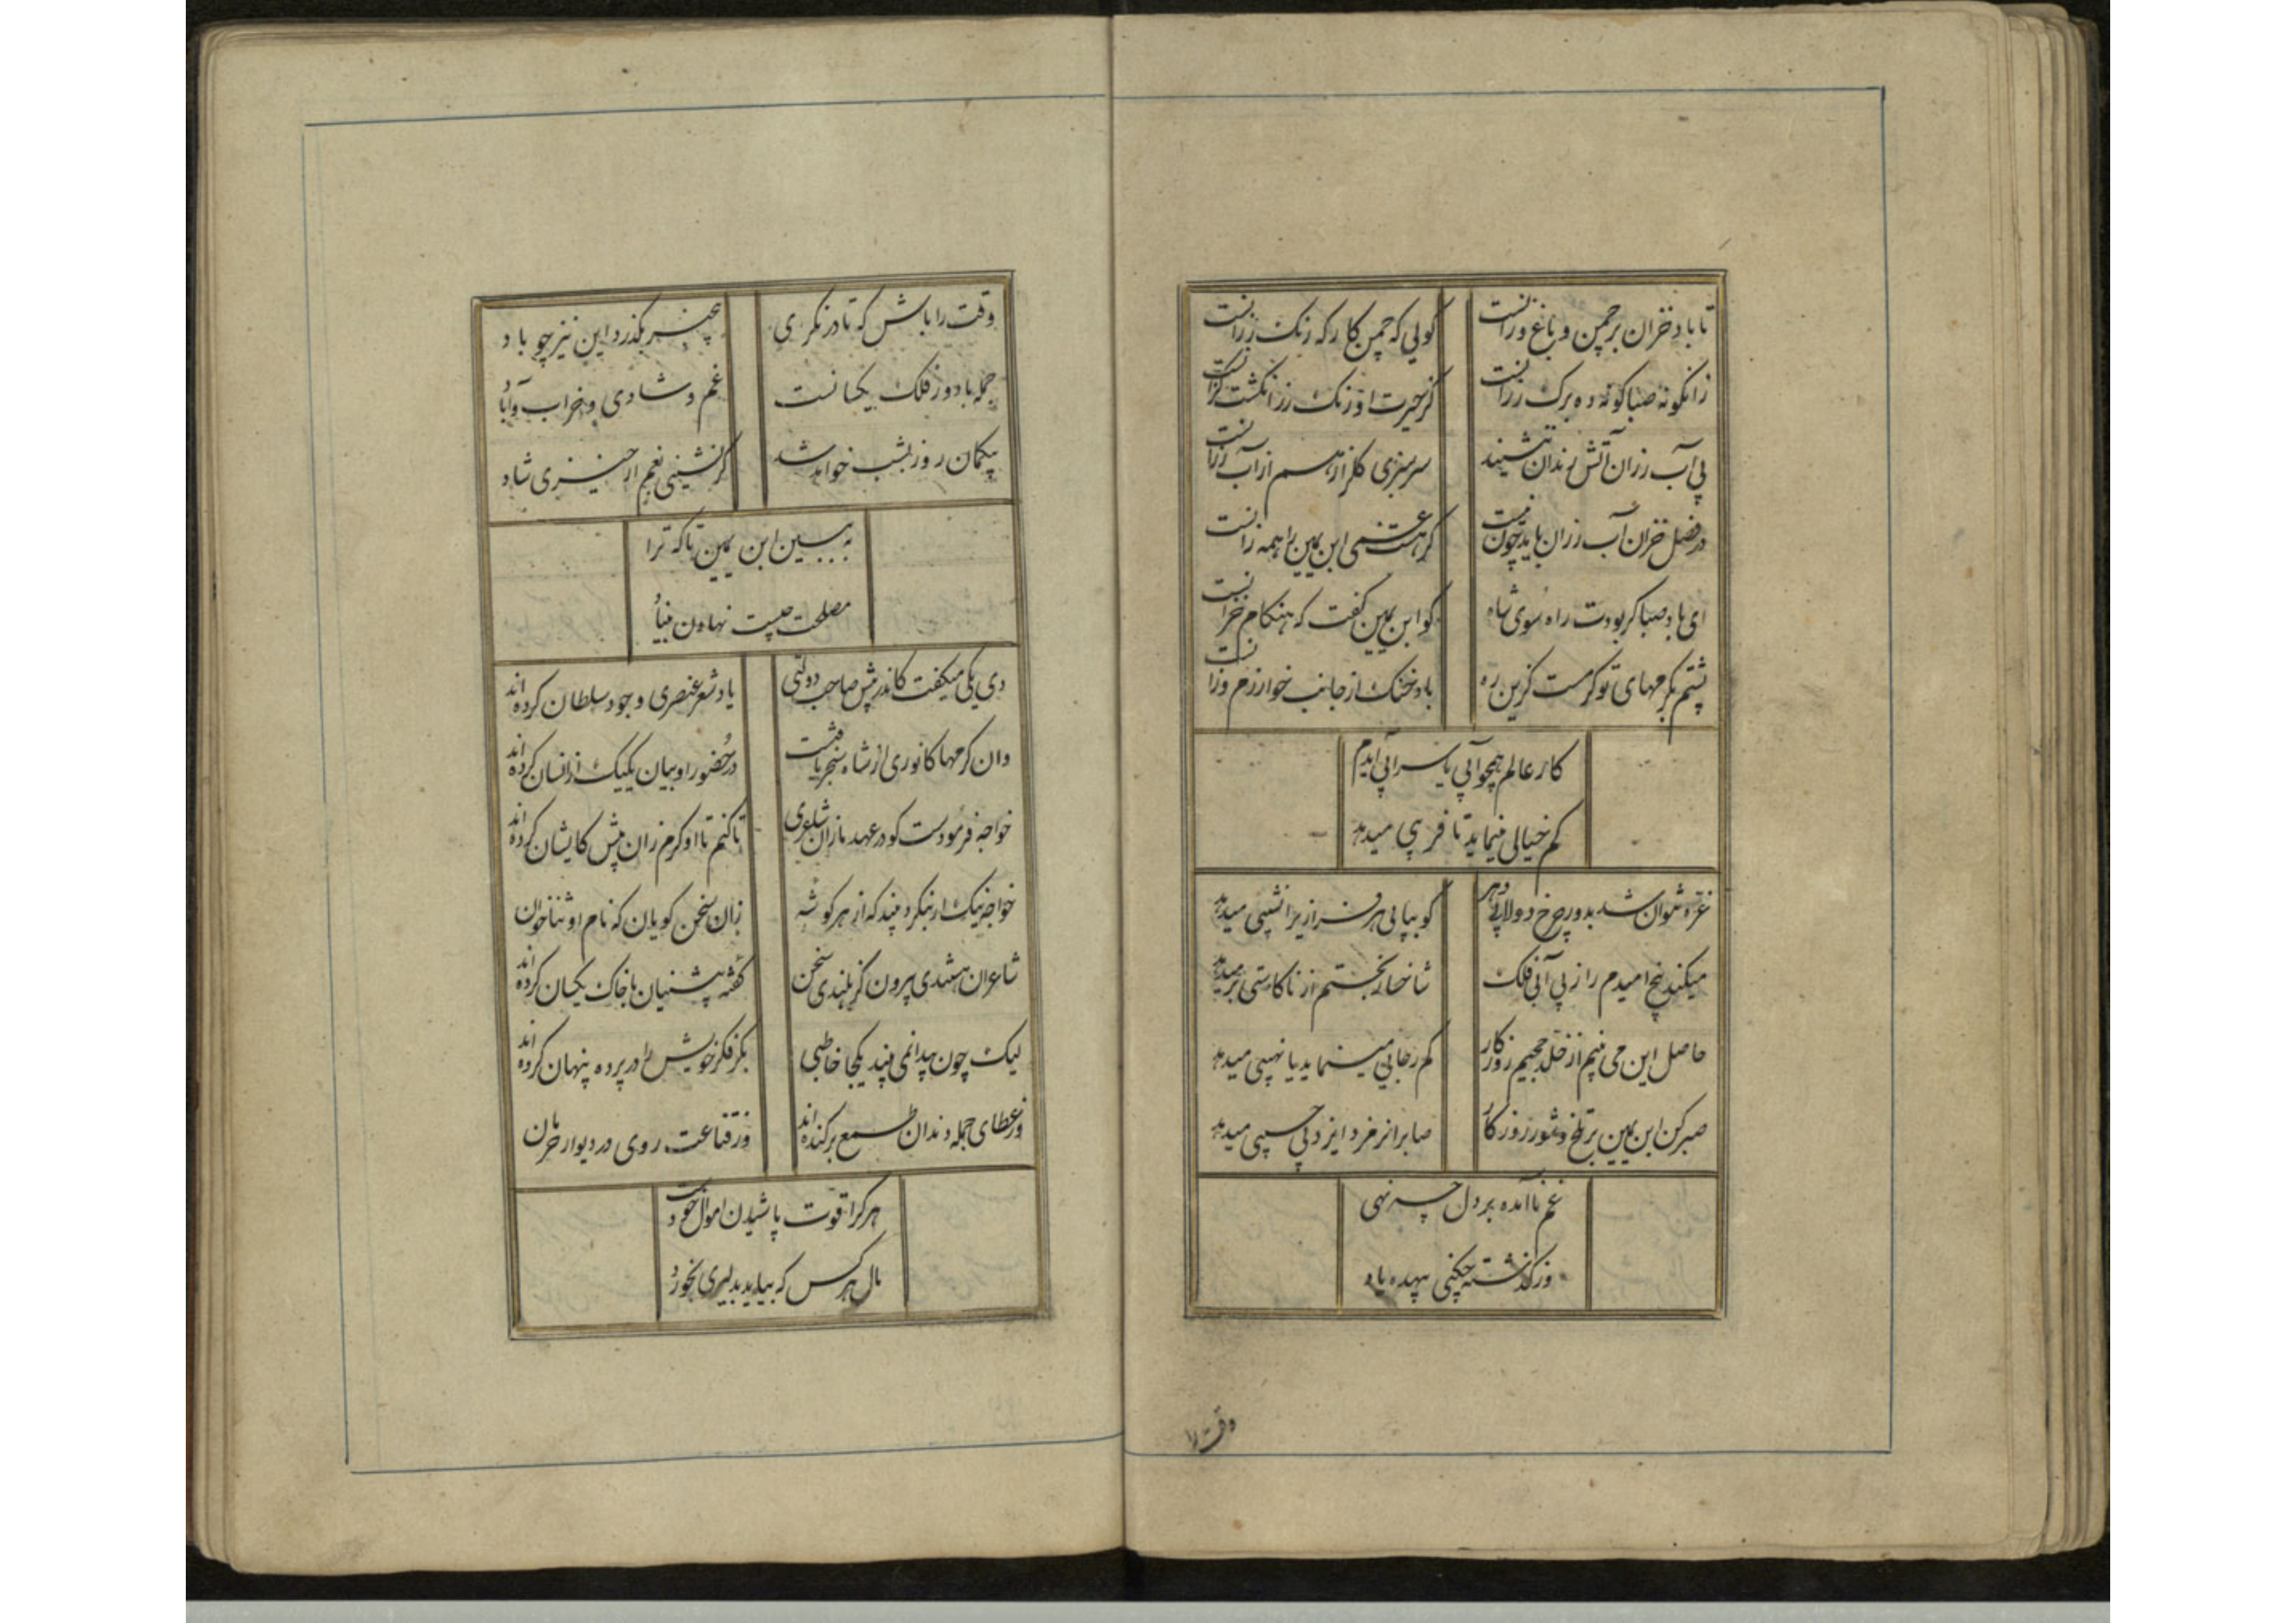 تا باد خزان بر چمن و باغ وزانست
گویی که چمن کارگه رنگ رزانست
زانگونه صبا گونه ده برگ رزانست
کز حیرت او رنگ رز انگشت گزانست
بی آب رزان آتش رندان ننشیند
سرسبزی گلزار هم از آب رزانست
در فصل خزان آب رزان باید چون نیست
گر هست غمی ابن یمین را همه زانست
ای باد صبا گر بودت راه سوی شاه
گو ابن یمین گفت که هنگام خزانست
پشتم بکرمهای تو گرمست کزین ره
باد خنک از جانب خوارزم وزانست
کار عالم همچو آبی یا سرابی آیدم
کم خیالی مینماید تا فریبی میدهد
غره نتوان شد بدور چرخ دولابی دهر
کو بپای هر فرازیرا نشیبی میدهد
میکند بیخ امیدم را ز بی آبی فلک
شاخسار بختم از ناکاستی بر میدهد
حاصل این می بینم از خلد و جحیم روزگار
کم رجایی مینماید یا نهیبی میدهد
صبر کن ابن یمین بر تلخ و شور روزگار
صابرانرا مزد ایزد بی حسیبی میدهد
غم ناآمده بر دل چه نهی
وز گذشته چکنی بیهده یاد
وقت را
وقت را باش که تا در نگری
بگذرد این نیز چو باد
جمله با دور فلک یکسانست
غم و شادی و خراب و آباد
بیگمان روز بشب خواهد شد
گر نشینی بغم ار خیزی شاد
به ببین ابن یمین تا که ترا
مصلحت چیست نهادن بنیاد
دی یکی میگفت کاندر پیش صاحب دولتی
یاد شعر عنصری و جود سلطان کرده‌اند
وان کرمها کانوری از شاه سنجر یافتست
در حضور او بیان یکیک از انسان کرده‌اند
خواجه فرمودست کو در عهد ما زان شاعری
تا کنم با او کرم زان پیش کایشان کرده‌اند
خواجه نیک ار بنگرد بیند که از هر گوشه
زان سخن گویان که نام او ثنا خوان
شاعران هستندی بیرون کز بلندی سخن
گفته پیشنیان با خاک یکسان کرده‌اند
لیک چون پیدا نمی بیند یکجا خاطبی
بکر فکر خویش را در پرده پنهان کرده‌اند
وز عطای جمله دندان طمع برکنده‌اند
وز قناعت روی در دیوار حرمان
هر کرا قوت پاشیدن اموال خود
مال هر کس که بیابد بدلیری بخورد